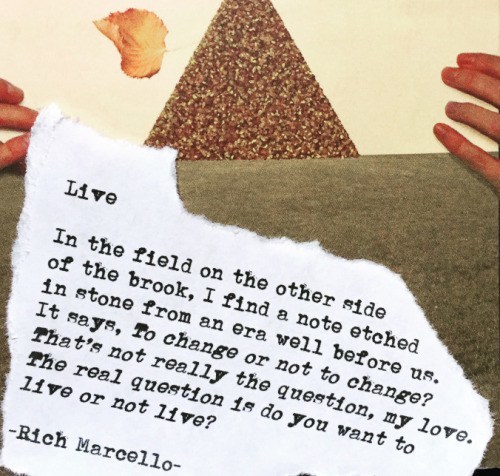 Live
In the field on the other side
of the brook, I find a note etched
in stone from an era well before us.
It says, To change or not to change?
That's not really the question, my love.
The real question is do you want to
live or not live?
-Rich Marcello-